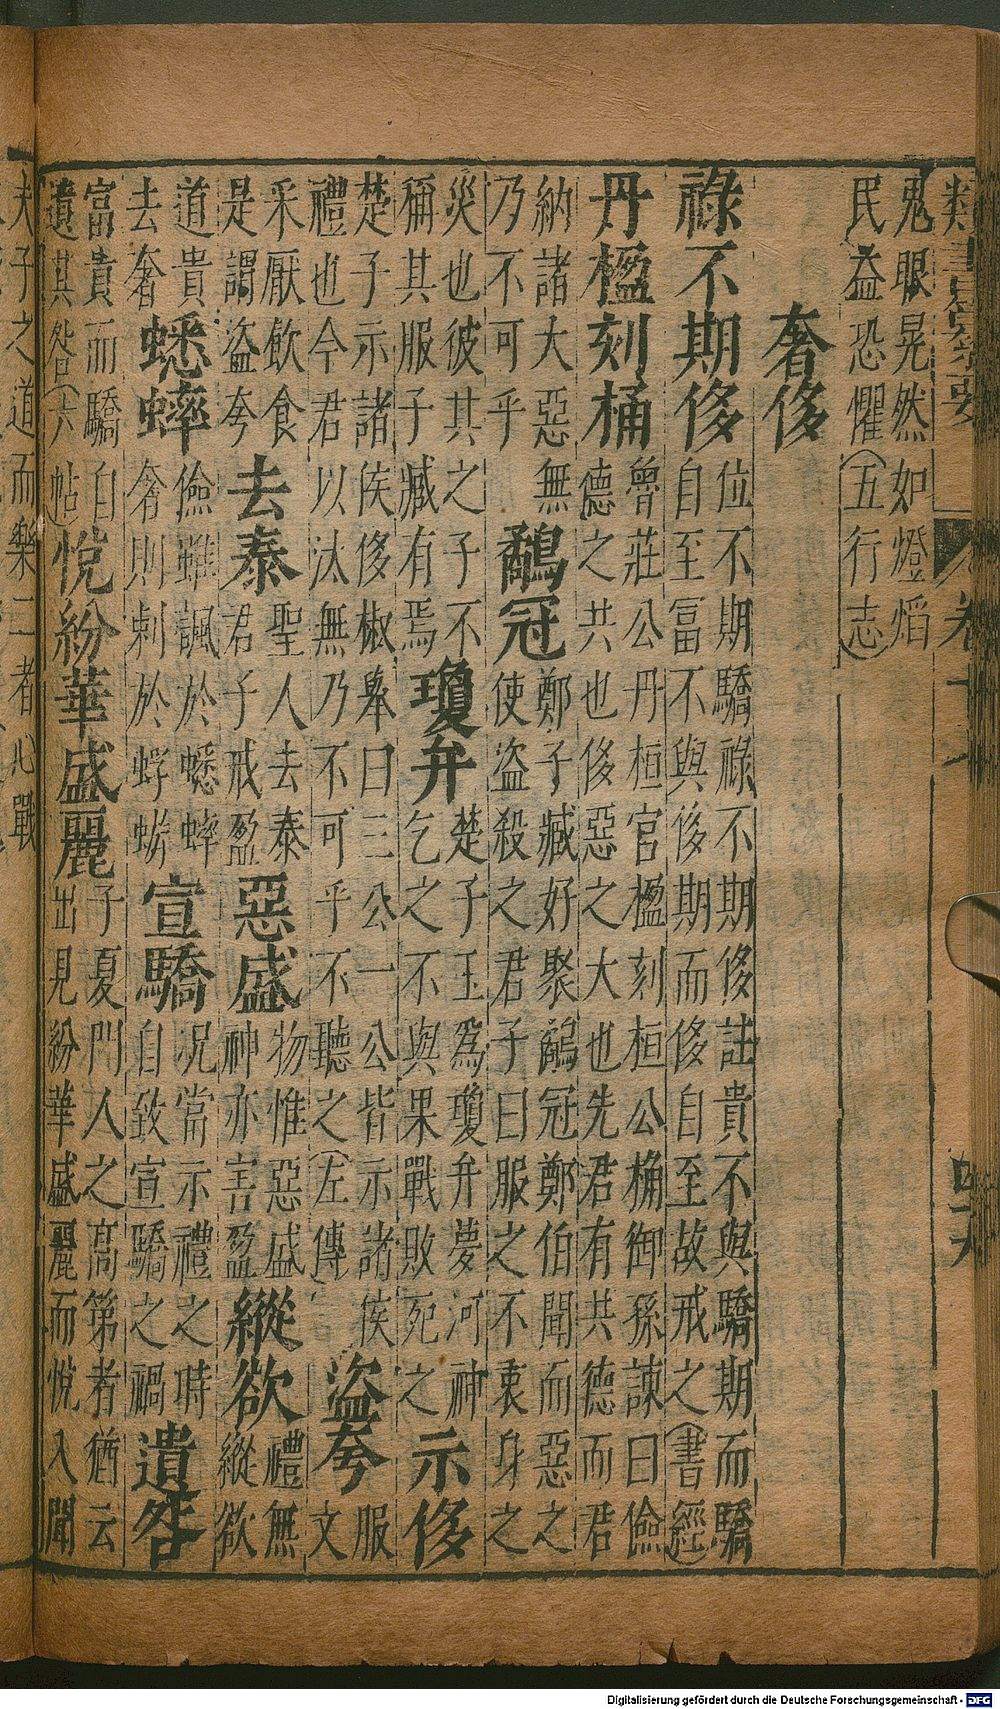 類書纂要
鬼眼晃然如燈焰
民益恐懼(五行志)
奢侈
祿不期侈
位不期驕祿不期侈註貴不與驕期而驕
自至冨不與侈期而侈自至故戒之(書經)
丹楹刻桷
魯莊公丹桓宮楹刻桓公桷御孫諫曰儉
德之共也侈惡之大也先君有共德而君
納諸大惡無
乃不可乎
鷸冠
鄭子臧好聚鷸冠鄭伯聞而惡之
使盜殺之君子曰服之不衷身之
災也彼其之子不
稱其服子臧有焉
瓊弁
楚子玉爲瓊弁夢河神
乞之不與果戰敗死之
示侈
楚子示諸侯侈椒舉曰三公一公皆示諸侯
禮也今君以汰無乃不可乎不聽之(左傳)
盜夸
服
文
采厭飲食
是謂盜夸
去泰
聖人去泰
君子戒盈
惡盛
物惟惡盛
神亦害盈
縱欲
禮無
縱欲
道貴
去奢
蟋蟀
儉雖諷於蟋蟀
奢則刺於蜉蝣
宣驕
况當示禮之時
自致宣驕之禍
遺咎
富貴而驕自
遺其咎(六帖)
悅紛華盛麗
子夏門人之高第者猶云
出見紛華盛麗而悅入聞
夫子之道而樂二者心戰
Digitalisierung gefördert durch die Deutsche Forschungsgemeinschaft - DFG